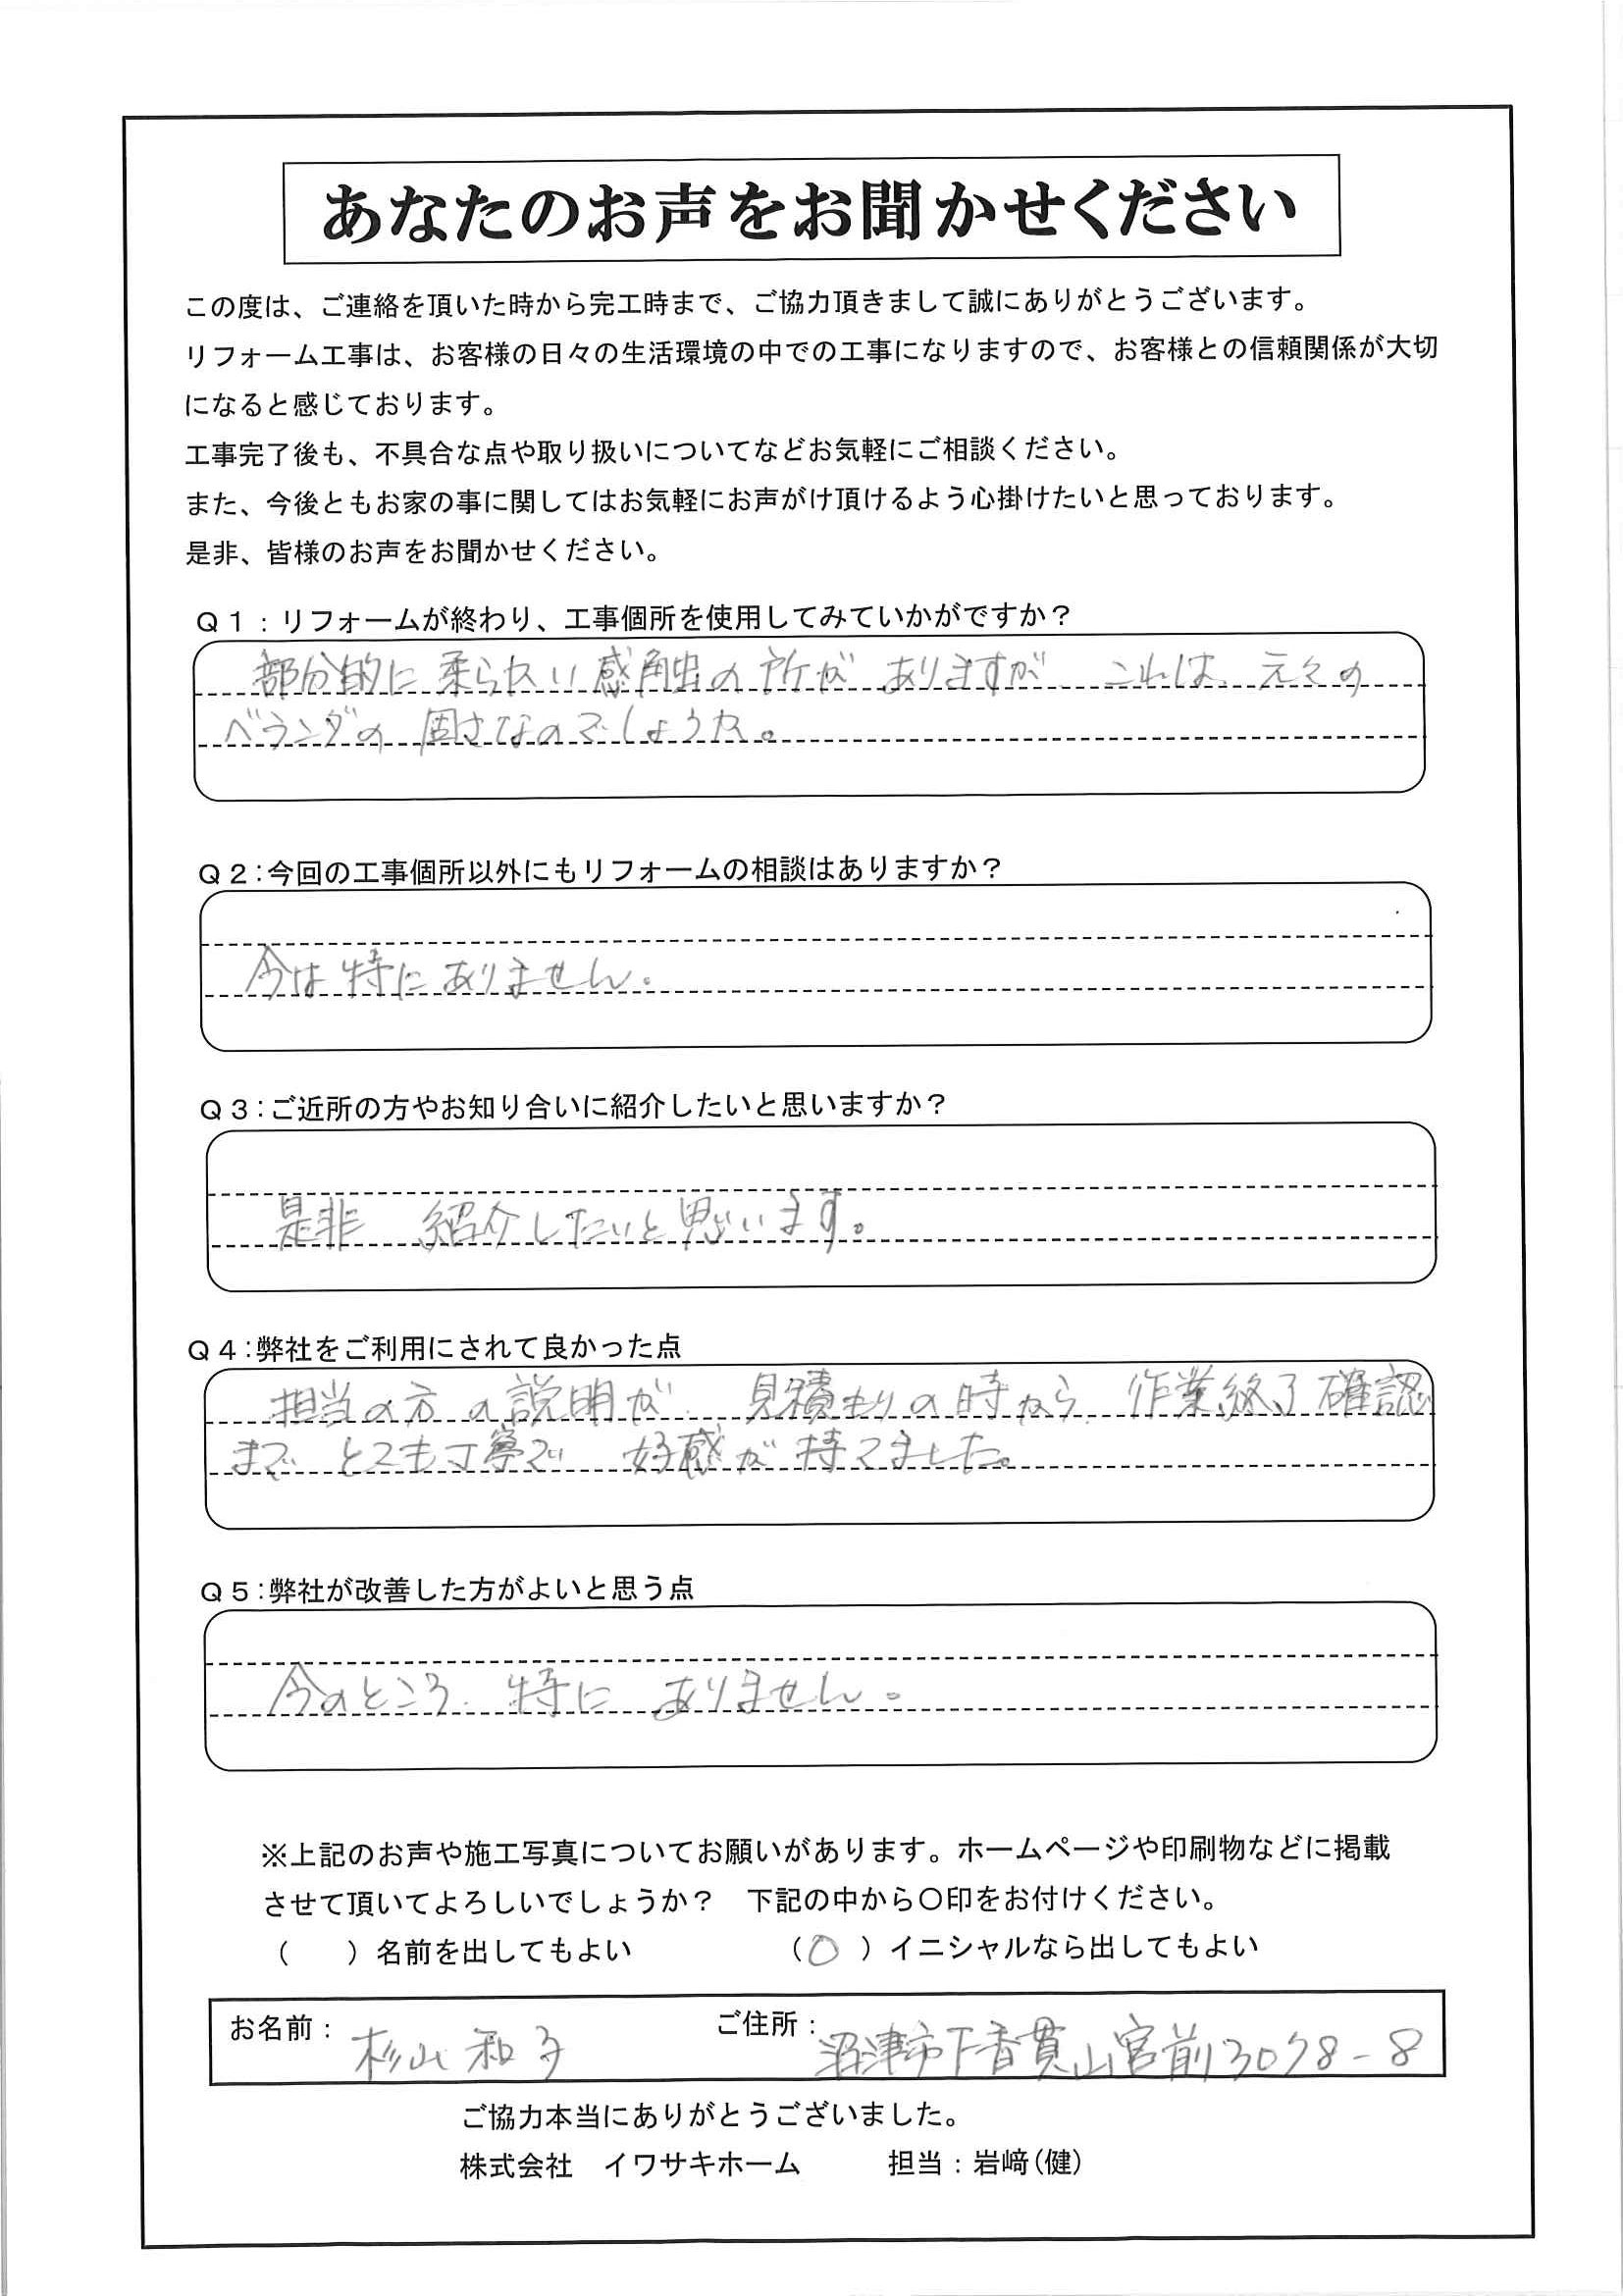 あなたのお声をお聞かせください
この度は、ご連絡を頂いた時から完工時まで、ご協力頂きまして誠にありがとうございます。
リフォーム工事は、お客様の日々の生活環境の中での工事になりますので、お客様との信頼関係が大切
になると感じております。
工事完了後も、不具合な点や取り扱いについてなどお気軽にご相談ください。
また、今後ともお家の事に関してはお気軽にお声がけ頂けるよう心掛けたいと思っております。
是非、皆様のお声をお聞かせください。
Q1：リフォームが終わり、工事個所を使用してみていかがですか？
部分的に柔らかい感触の所がありますが、これは、元々の
ベランダの固さなのでしょうか。
Q2：今回の工事個所以外にもリフォームの相談はありますか？
今は特にありません。
Q3：ご近所の方やお知り合いに紹介したいと思いますか？
是非 紹介したいと思います。
Q4：弊社をご利用にされて良かった点
担当の方の説明が、見積もりの時から、作業終了確認
まで、とても丁寧で、好感が持てました。
Q5：弊社が改善した方がよいと思う点
今のところ、特に ありません。
※上記のお声や施工写真についてお願いがあります。ホームページや印刷物などに掲載
させて頂いてよろしいでしょうか？　下記の中から〇印をお付けください。
（　　）名前を出してもよい　　　（〇）イニシャルなら出してもよい
お名前：杉山 和子　ご住所：沼津市下香貫山宮前3078-8
ご協力本当にありがとうございました。
株式会社　イワサキホーム　　担当：岩﨑(健)